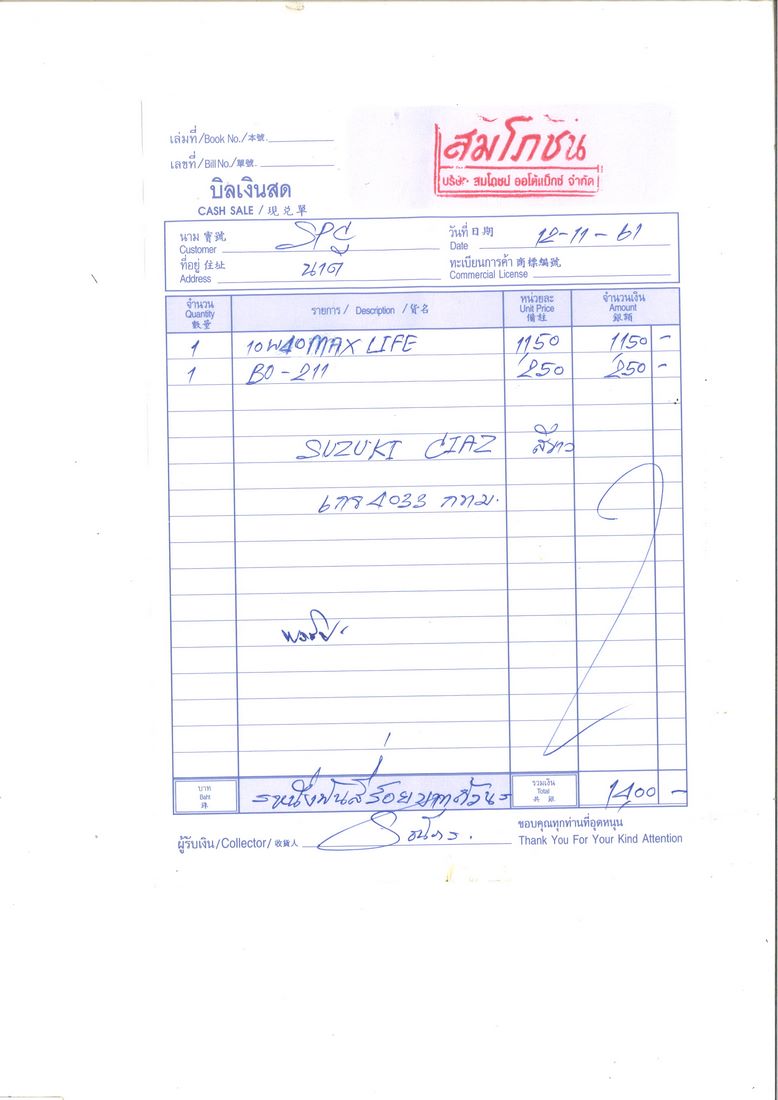 เล่มที่/Book No./本號.
เลขที่/Bill No./單號.
บิลเงินสด
CASH SALE / 現兑單
สมโภชน์
บริษัท สมโภชน์ ออโต้แม็กซ์ จำกัด
นาม 寶號 SPC วันที่ 日期 12-11-61
Customer Date
ที่อยู่ 住址 นาดี ทะเบียนการค้า 商標編號
Address Commercial License
จำนวน รายการ / Description / 貨名 หน่วยละ จำนวนเงิน
Quantity Unit Price Amount
數量 備註 銀額
1 10W40 MAX LIFE 1150 1150 -
1 BO-211 250 250 -
SUZUKI CIAZ สีขาว
6กร 4033 กทม.
บาท รวมเงิน
Baht Total
銖 共銀
=หนึ่งพันสี่ร้อยบาทถ้วน= 1400 -
ผู้รับเงิน/Collector/ 收貨人
ขอบคุณทุกท่านที่อุดหนุน
Thank You For Your Kind Attention